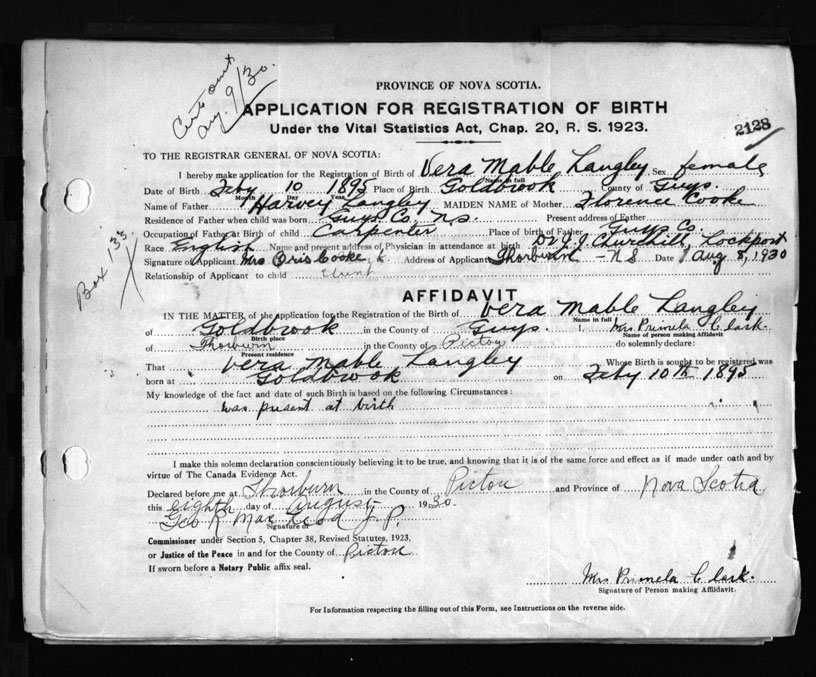 Cert out
Aug. 9/30.
PROVINCE OF NOVA SCOTIA.
APPLICATION FOR REGISTRATION OF BIRTH
Under the Vital Statistics Act, Chap. 20, R. S. 1923.
2128
TO THE REGISTRAR GENERAL OF NOVA SCOTIA:
I hereby make application for the Registration of Birth of Vera Mable Langley Sex female
Name in full
Date of Birth Feby 10 1895 Place of Birth Goldbrook County of Guys.
Month Day Year
Name of Father Harvey Langley MAIDEN NAME of Mother Florence Cooke
Residence of Father when child was born Guys Co, N.S. Present address of Father
Occupation of Father at Birth of child Carpenter Place of birth of Father Guys Co.
Race English Name and present address of Physician in attendance at birth Dr J.J. Churchill, Lockport
Signature of Applicant Mrs Oris Cooke Address of Applicant Thorburn - N S Date Aug 8, 1930
Relationship of Applicant to child Aunt
Box 133
AFFIDAVIT
IN THE MATTER of the application for the Registration of Birth of Vera Mable Langley
Name in full
of Goldbrook in the County of Guys. I, Mrs Primela Clark.
Birth place Name of person making Affidavit
of Thorburn in the County of Pictou do solemnly declare:
Present residence
That Vera Mable Langley Whose Birth is sought to be registered was
born at Goldbrook on Feby 10th 1895
My knowledge of the fact and date of such Birth is based on the following Circumstances:
was present at birth
I make this solemn declaration conscientiously believing it to be true, and knowing that it is of the same force and effect as if made under oath and by
virtue of The Canada Evidence Act.
Declared before me at Thorburn in the County of Pictou and Province of Nova Scotia
this eighth day of August 1930.
Geo R Mac Leod J. P.
Signature of
Commissioner under Section 5, Chapter 38, Revised Statutes, 1923,
or Justice of the Peace in and for the County of Pictou
If sworn before a Notary Public affix seal.
Mrs Primela Clark.
Signature of Person making Affidavit.
For Information respecting the filling out of this Form, see Instructions on the reverse side.